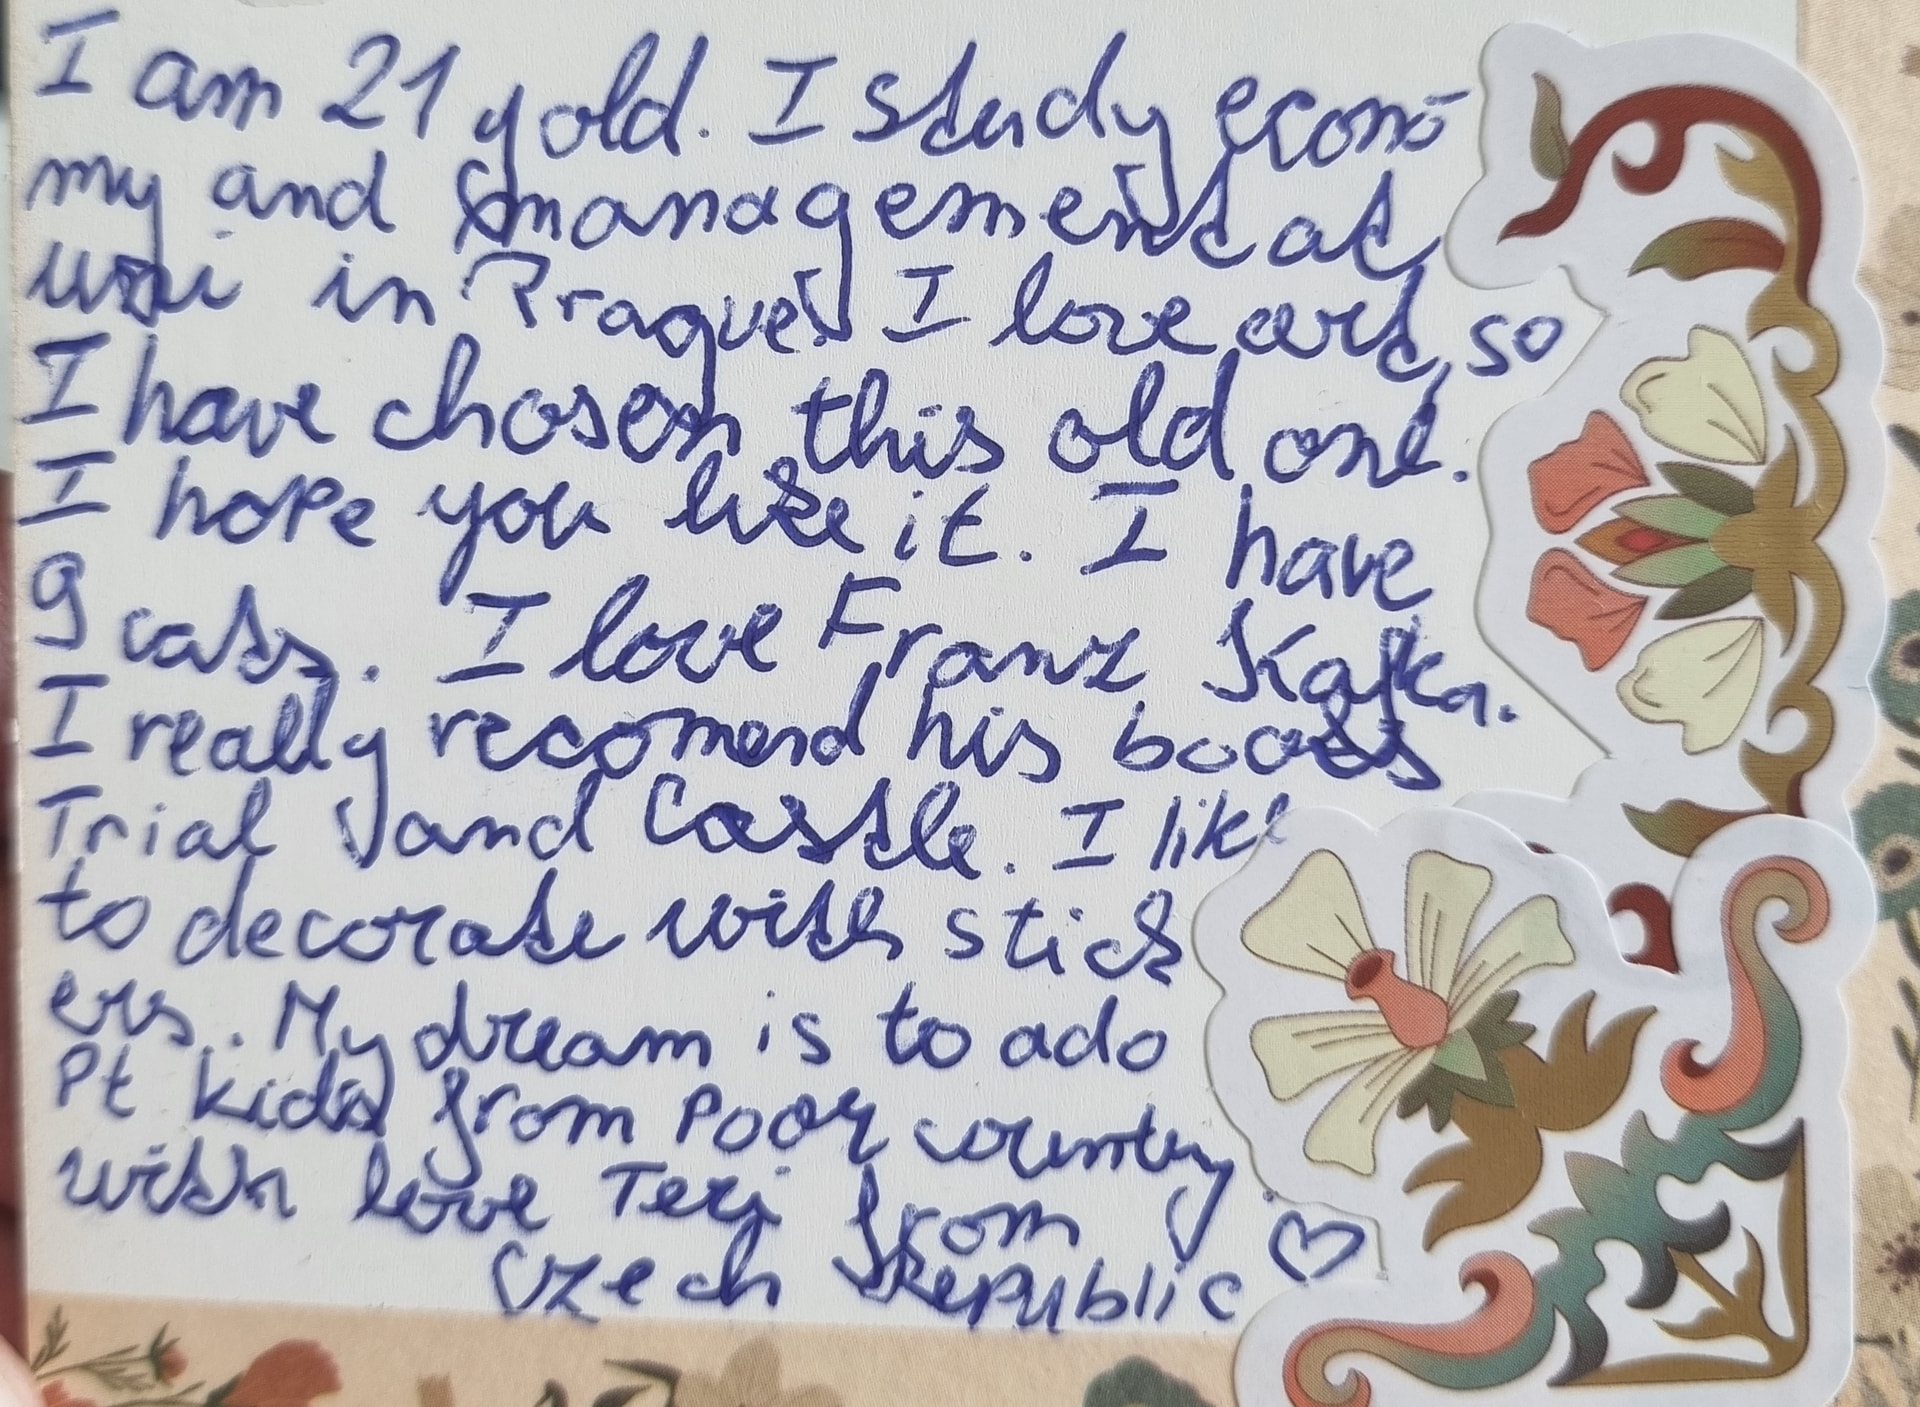 I am 21 y old. I study econo-
my and management at
uni in Prague. I love art, so
I have chosen this old one.
I hope you like it. I have
9 cats. I love Franz Kafka.
I really recomend his books
Trial and Castle. I like
to decorate with stick
ers. My dream is to ado
pt kids from poor country.
with love Teri from
Czech Republic